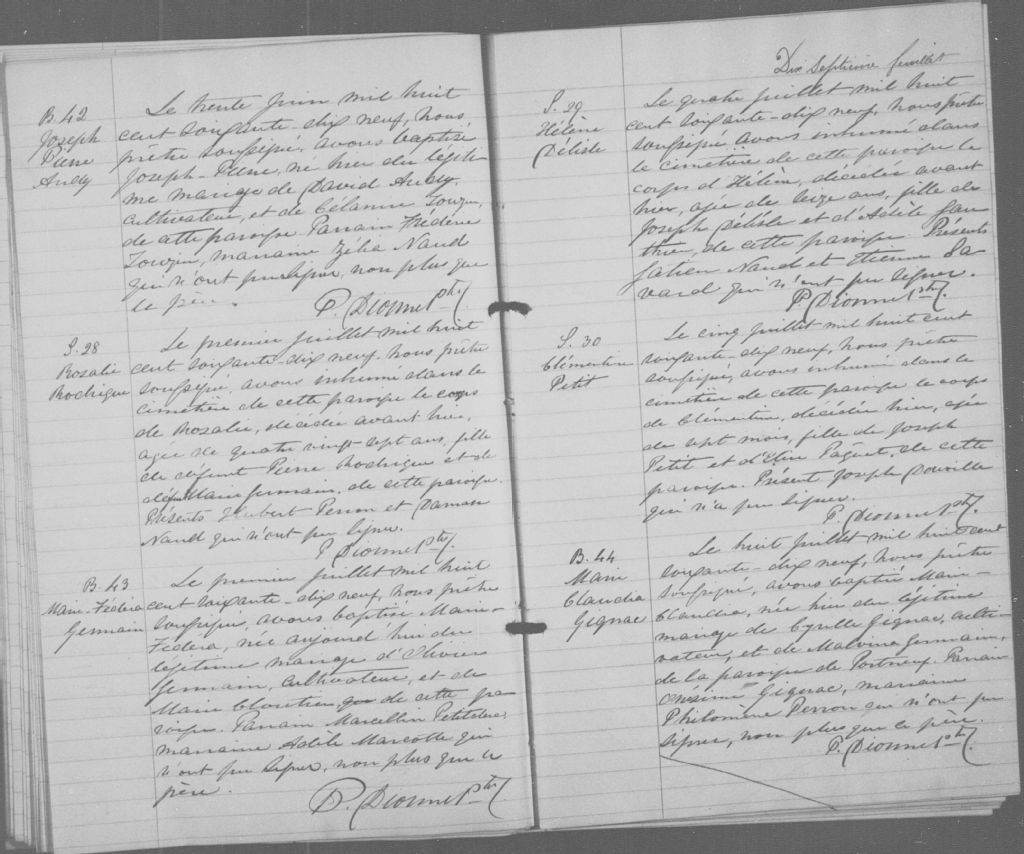 B. 42
Joseph
Pierre
Andy
Le trente juin mil huit
cent soixante-dix neuf, nous,
prêtre soussigné, avons baptisé
Joseph-Pierre, né hier du légiti-
me mariage de David
cultivateur, et de Célanire
de cette paroisse. Parrain Frédéric
marraine Zélia Naud
qui n'ont pu signer, non plus que
le père.
P. Dionne Ptre.
S. 28
Rosalie
Rodrigue
Le premier juillet mil huit
cent soixante-dix neuf, nous prêtre
soussigné, avons inhumé dans le
cimetière de cette paroisse le corps
de Rosalie, décédée avant hier,
agée de quatre vingt-sept ans, fille
de défunt Pierre Rodrigue et de
défunte Marie Germain, de cette paroisse.
Présents Hubert Perron et Damase
Naud qui n'ont pu signer.
P. Dionne Ptre.
B. 43
Marie-Fédora
Germain
Le premier juillet mil huit
cent soixante-dix neuf, nous prêtre
soussigné, avons baptisé Marie-
Fédora, née aujourd'hui du
légitime mariage d'Olivier
Germain, cultivateur, et de
Marie Cloutier, de cette pa
roisse. Parrain Marcellin Petitclerc,
marraine Adèle Marcotte qui
n'ont pu signer, non plus que le
père.
P. Dionne Ptre.
Dix septième feuillet
S. 29
Hélène
Délisle
Le quatre juillet mil huit
cent soixante-dix neuf, nous prêtre
soussigné, avons inhumé dans
le cimetière de cette paroisse le
corps d'Hélène, décédée avant
hier, agée de seize ans, fille de
Joseph Délisle et d'Adèle Gau
thier, de cette paroisse. Présents
Fabien Naud et Etienne Sa-
vard qui n'ont pu signer.
P. Dionne Ptre.
S. 30
Clémentine
Petit
Le cinq juillet mil huit cent
soixante-dix neuf, nous prêtre
soussigné, avons inhumé dans le
cimetière de cette paroisse le corps
de Clémentine, décédée hier, agée
de sept mois, fille de Joseph
Petit et d'Elise Pâquet, de cette
paroisse. Présent Joseph Douville
qui n'a pu signer.
P. Dionne Ptre.
B. 44
Marie
Claudia
Gignac
Le huit juillet mil huit cent
soixante-dix neuf, nous prêtre
soussigné, avons baptisé Marie-
Claudia, née hier du légitime
mariage de Cyrille Gignac, culti-
vateur, et de Malvina Germain,
de la paroisse de Portneuf. Parrain
Onésime Gignac, marraine
Philomène Perron qui n'ont pu
signer, non plus que le père.
P. Dionne Ptre.